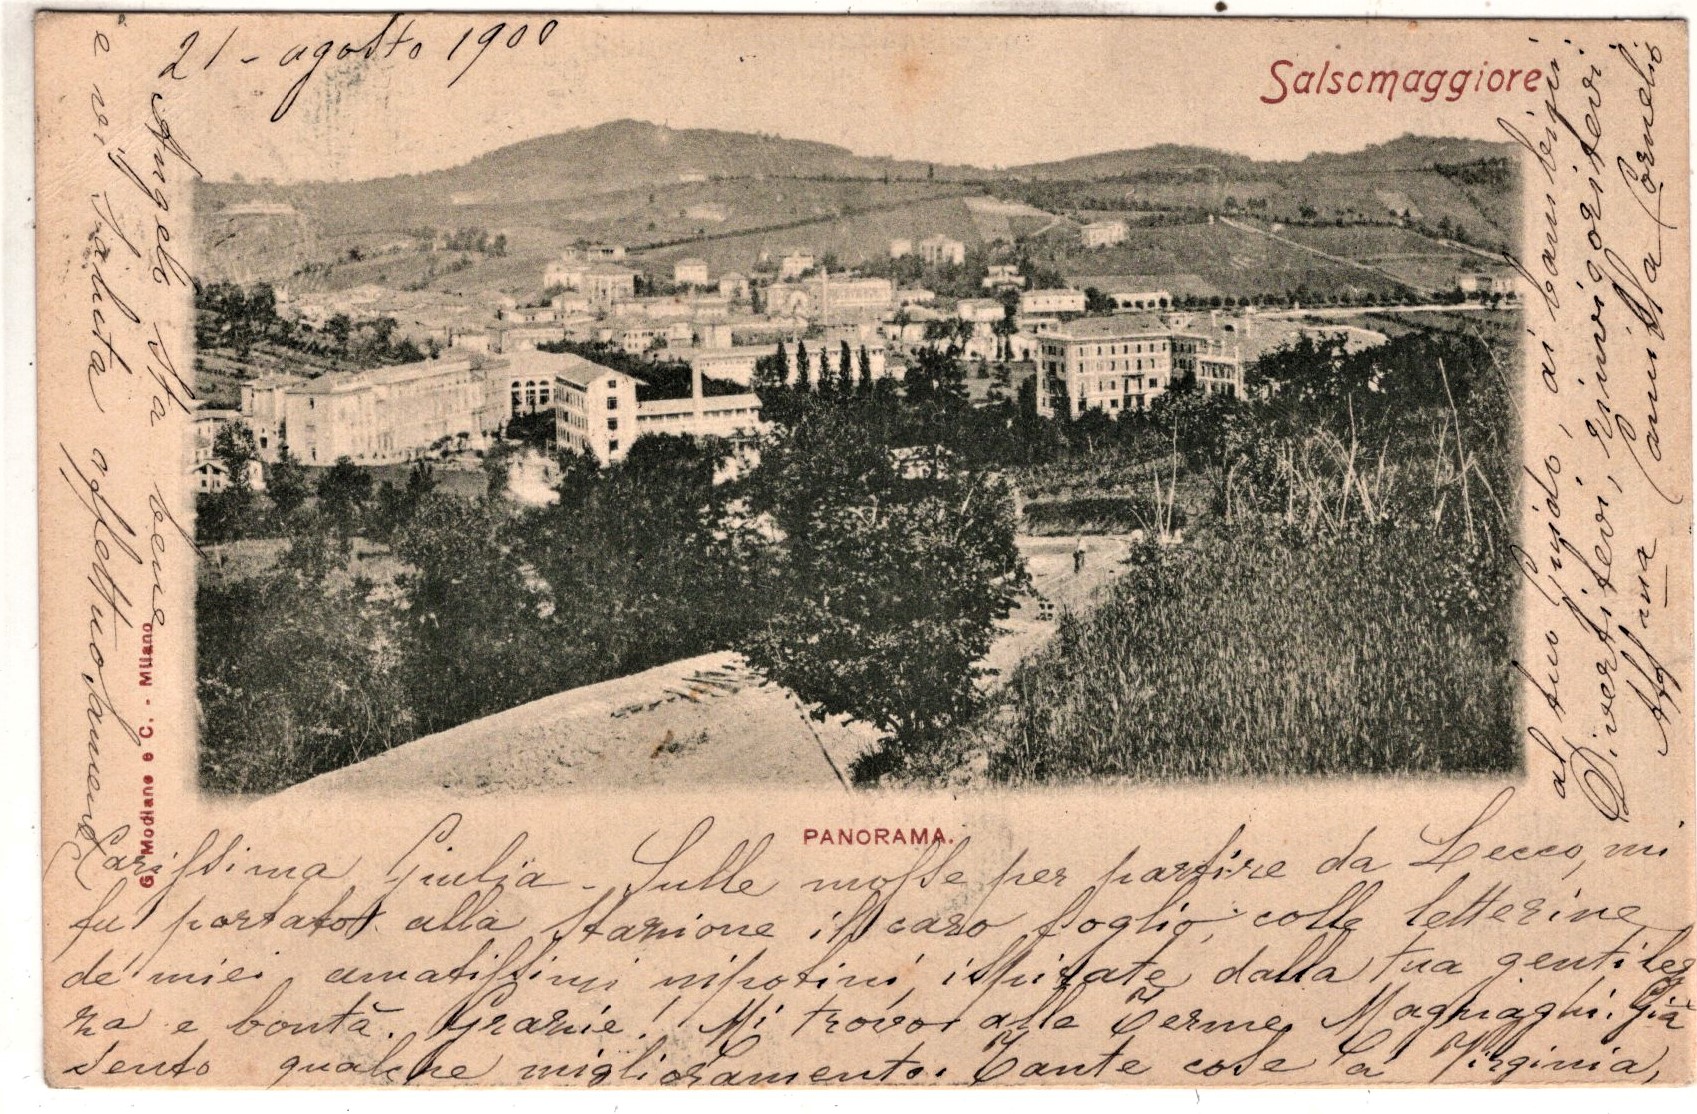 21 - agosto 1900
Salsomaggiore
PANORAMA.
G. Modiano e C. - Milano
Carissima Giulia - Sulle mosse per partire da Lecco, mi
fu portato alla stazione il caro foglio, colle letterine
de' miei amatissimi nipotini, ispirate dalla tua gentilez
za e bontà. Grazie! Mi trovo alle Terme Magnaghi. Già
sento qualche miglioramento. Tante cose a Virginia,
al tuo Guido, ai bambini
Divertitevi, rinvigoritevi
Aff.ma Camilla Cornelio
Angelo sta bene
e vi saluta affettuosamente